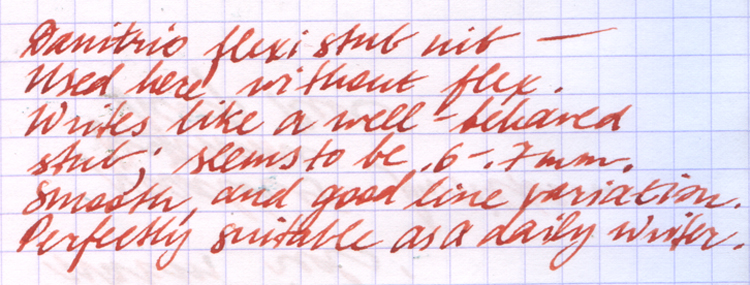 Danitrio flexi stub nib —
Used here without flex.
Writes like a well-behaved
stub; seems to be .6-.7mm.
Smooth, and good line variation.
Perfectly suitable as a daily writer.